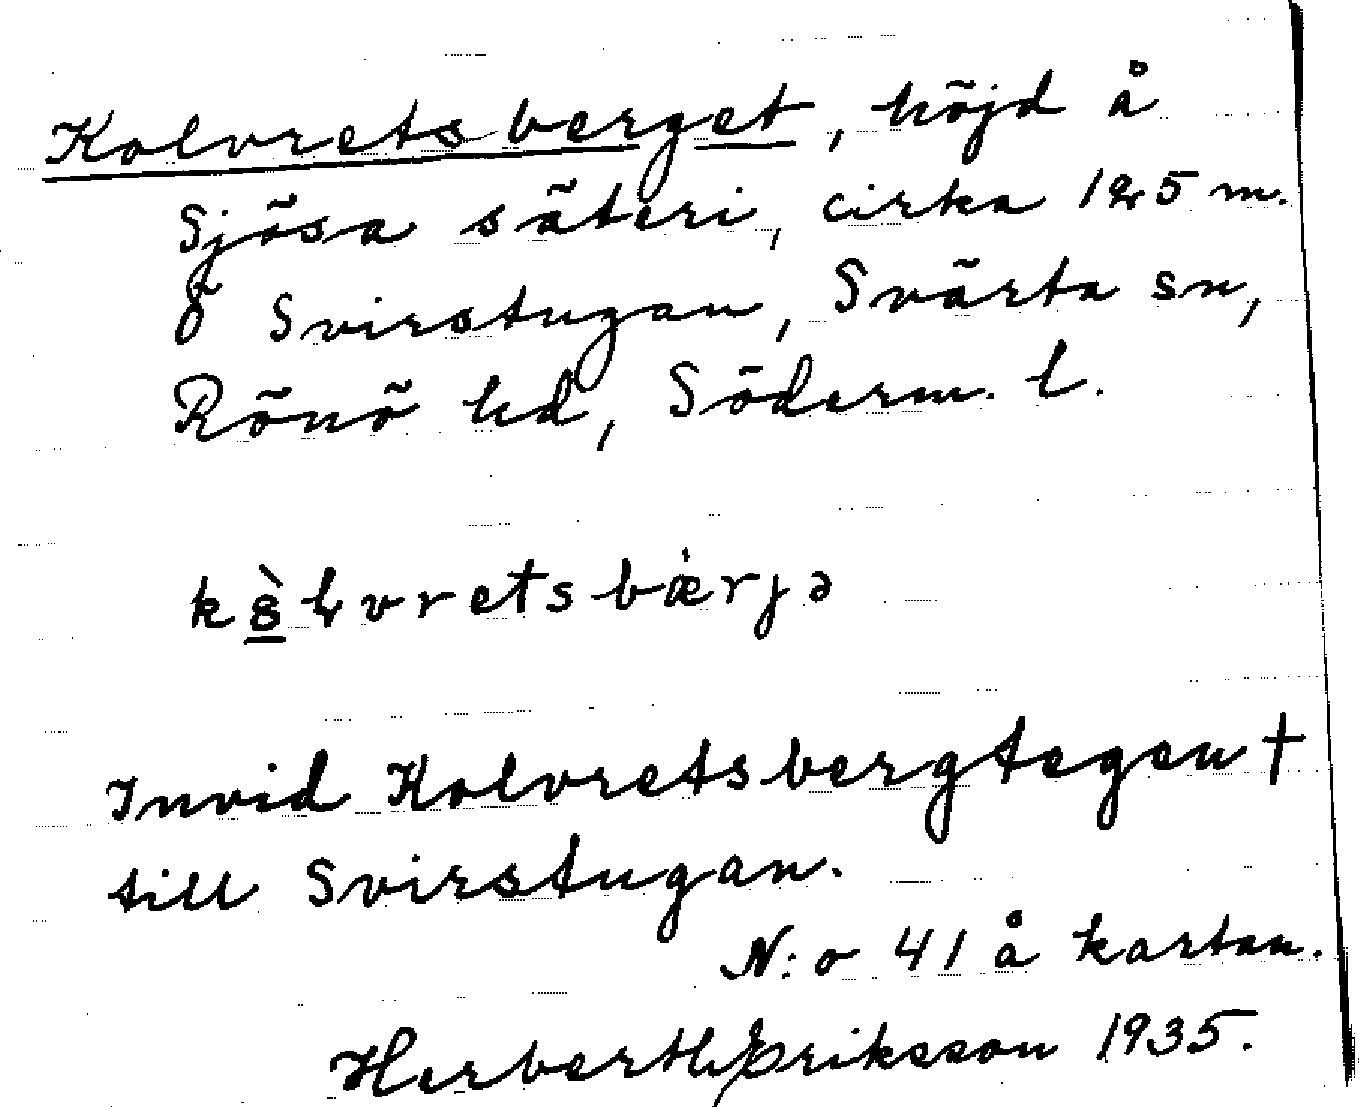 Kolvretsberget, höjd å
Sjösa säteri, cirka 125 m.
Ö Svirstugan, Svärta sn,
Rönö hd, Söderm. l.
vretsbærjə
Invid Kolvretsbergtegen †
till Svirstugan.
N:o 41 å kartan.
Herbert Eriksson 1935.